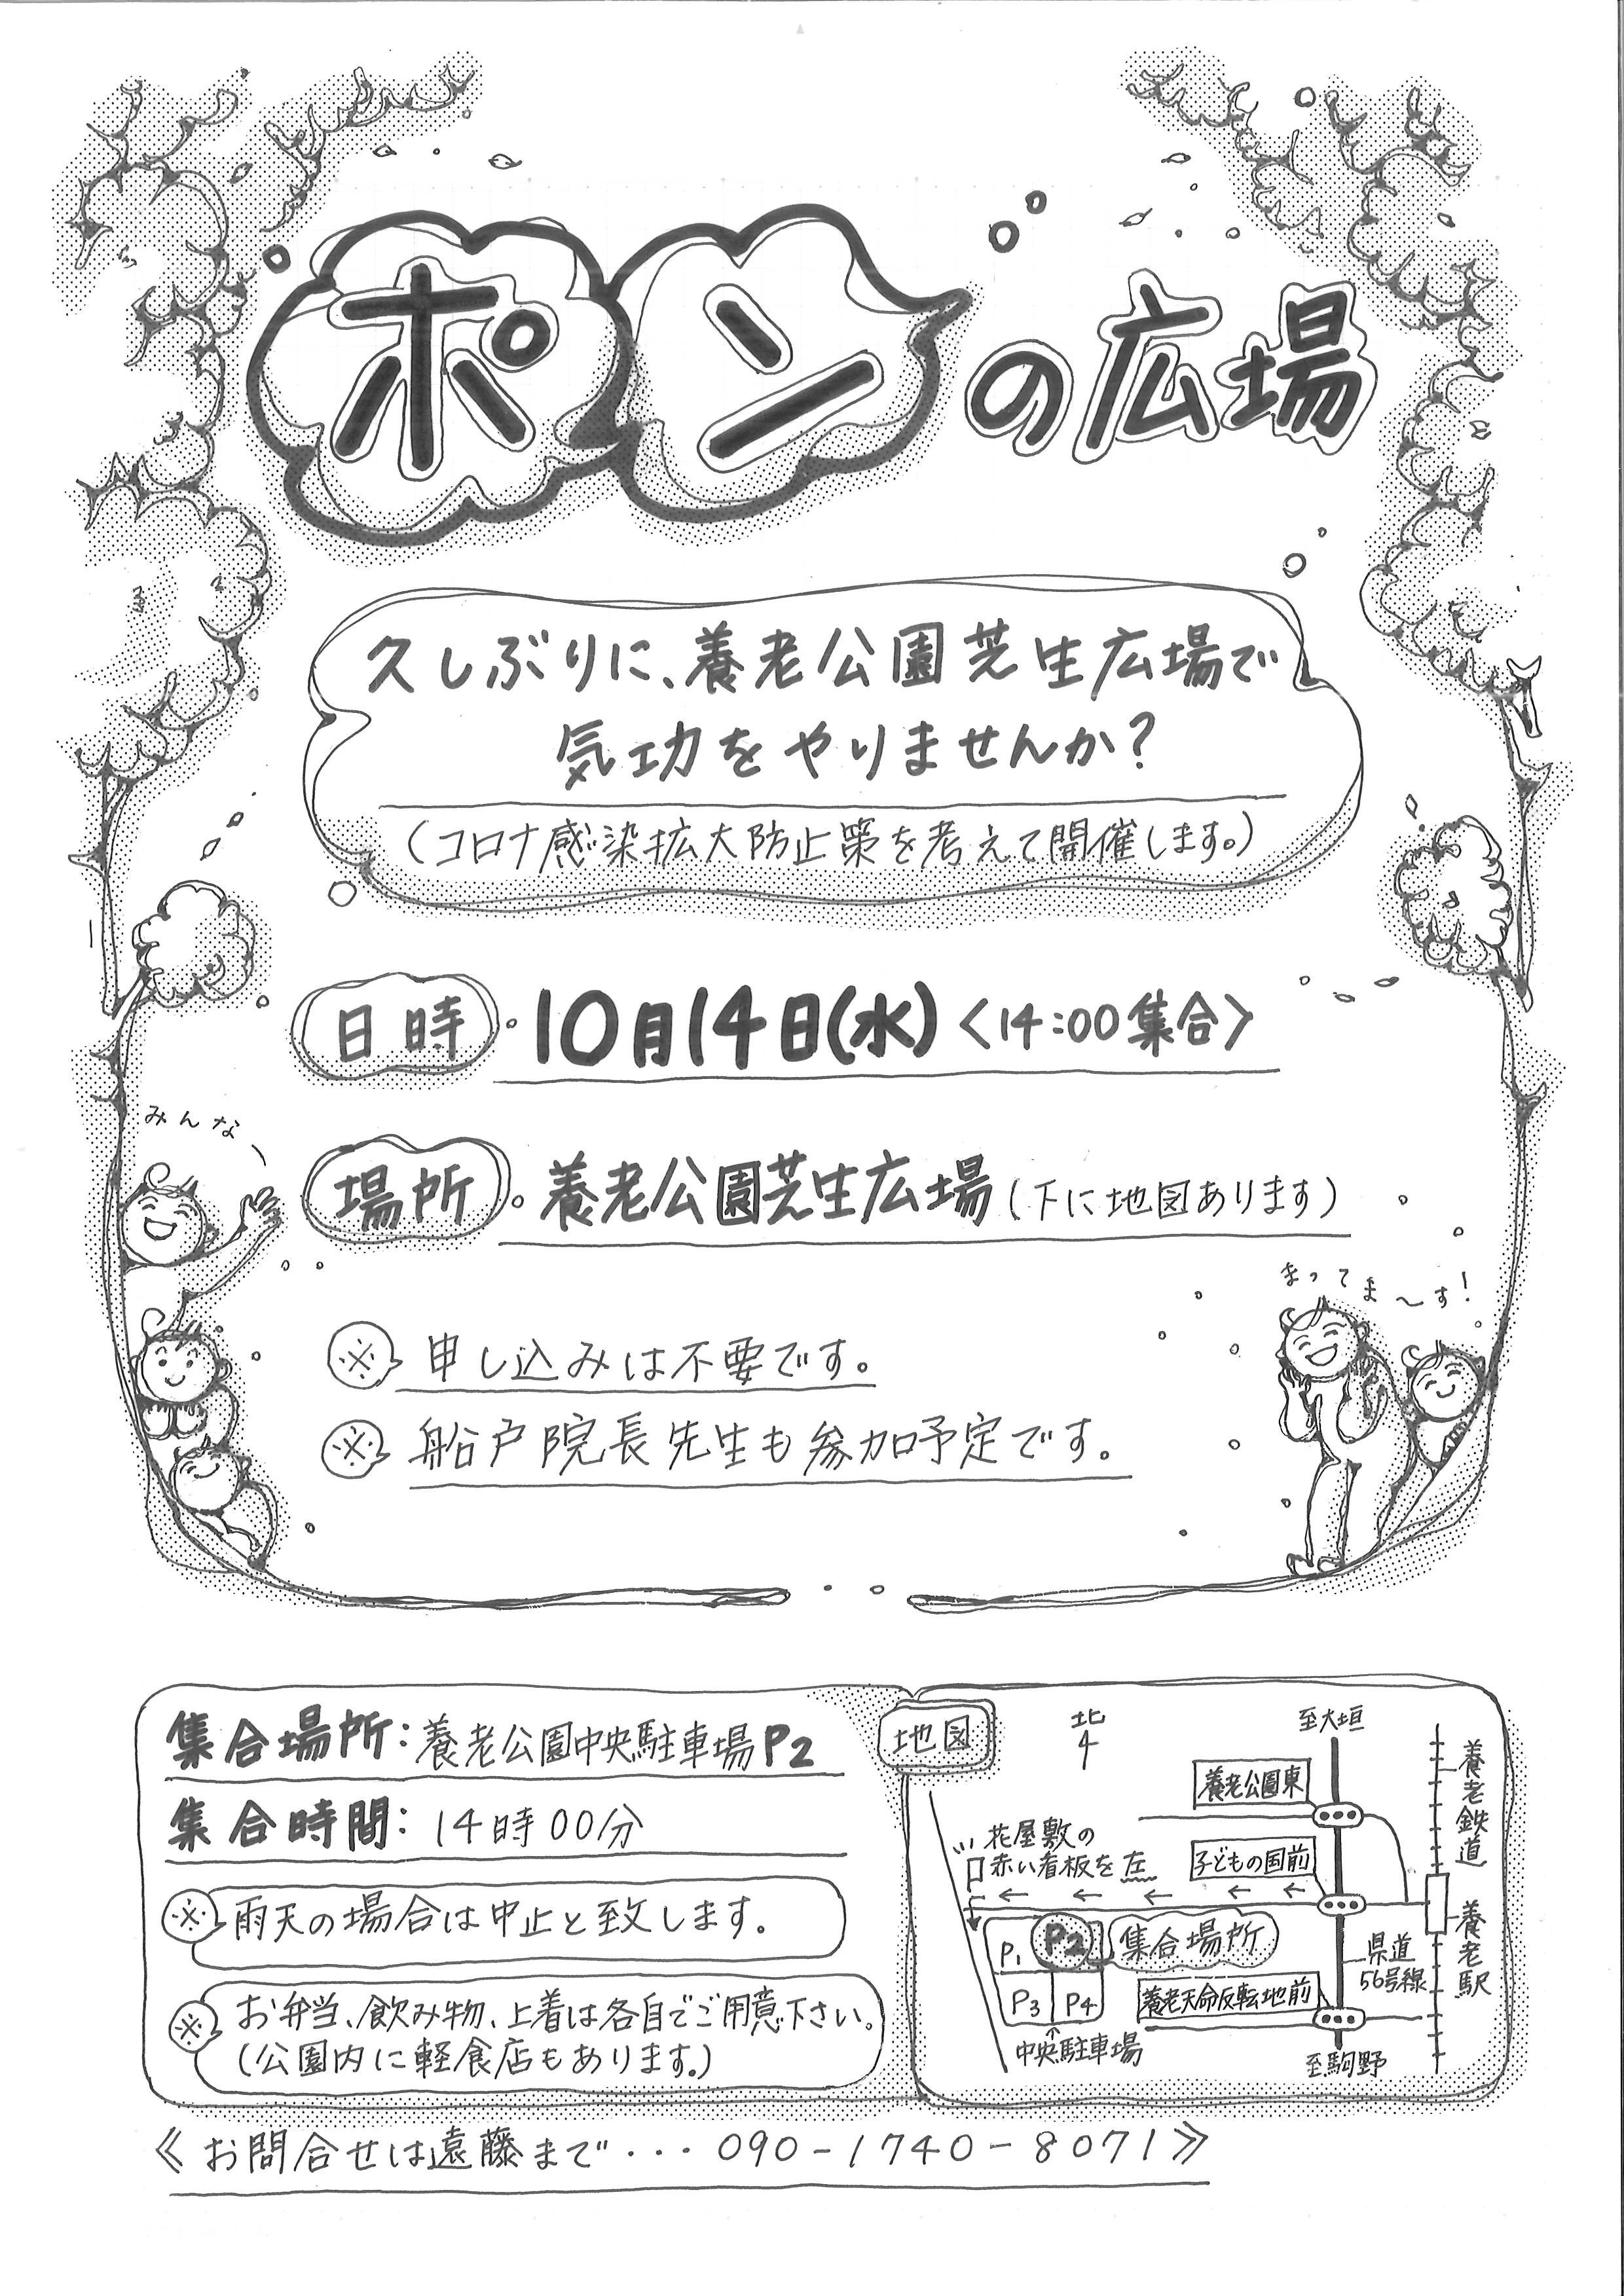 ポンの広場
久しぶりに、養老公園芝生広場で
気功をやりませんか?
(コロナ感染拡大防止策を考えて開催します。)
日時 10月14日(水)〈14:00集合〉
場所 養老公園芝生広場(下に地図あります)
みんな
まってま〜す!
※ 申し込みは不要です。
※ 船戸院長先生も参加予定です。
集合場所:養老公園中央駐車場P2
集合時間:14時00分
※ 雨天の場合は中止と致します。
※ お弁当、飲み物、上着は各自でご用意下さい。
(公園内に軽食店もあります。)
地図
北
至大垣
養老鉄道
養老公園東
花屋敷の
赤い看板を左
子どもの国前
P1 P2 集合場所
P3 P4
養老天命反転地前
県道
56号線
養老駅
中央駐車場
至駒野
《お問合せは遠藤まで・・・090-1740-8071》